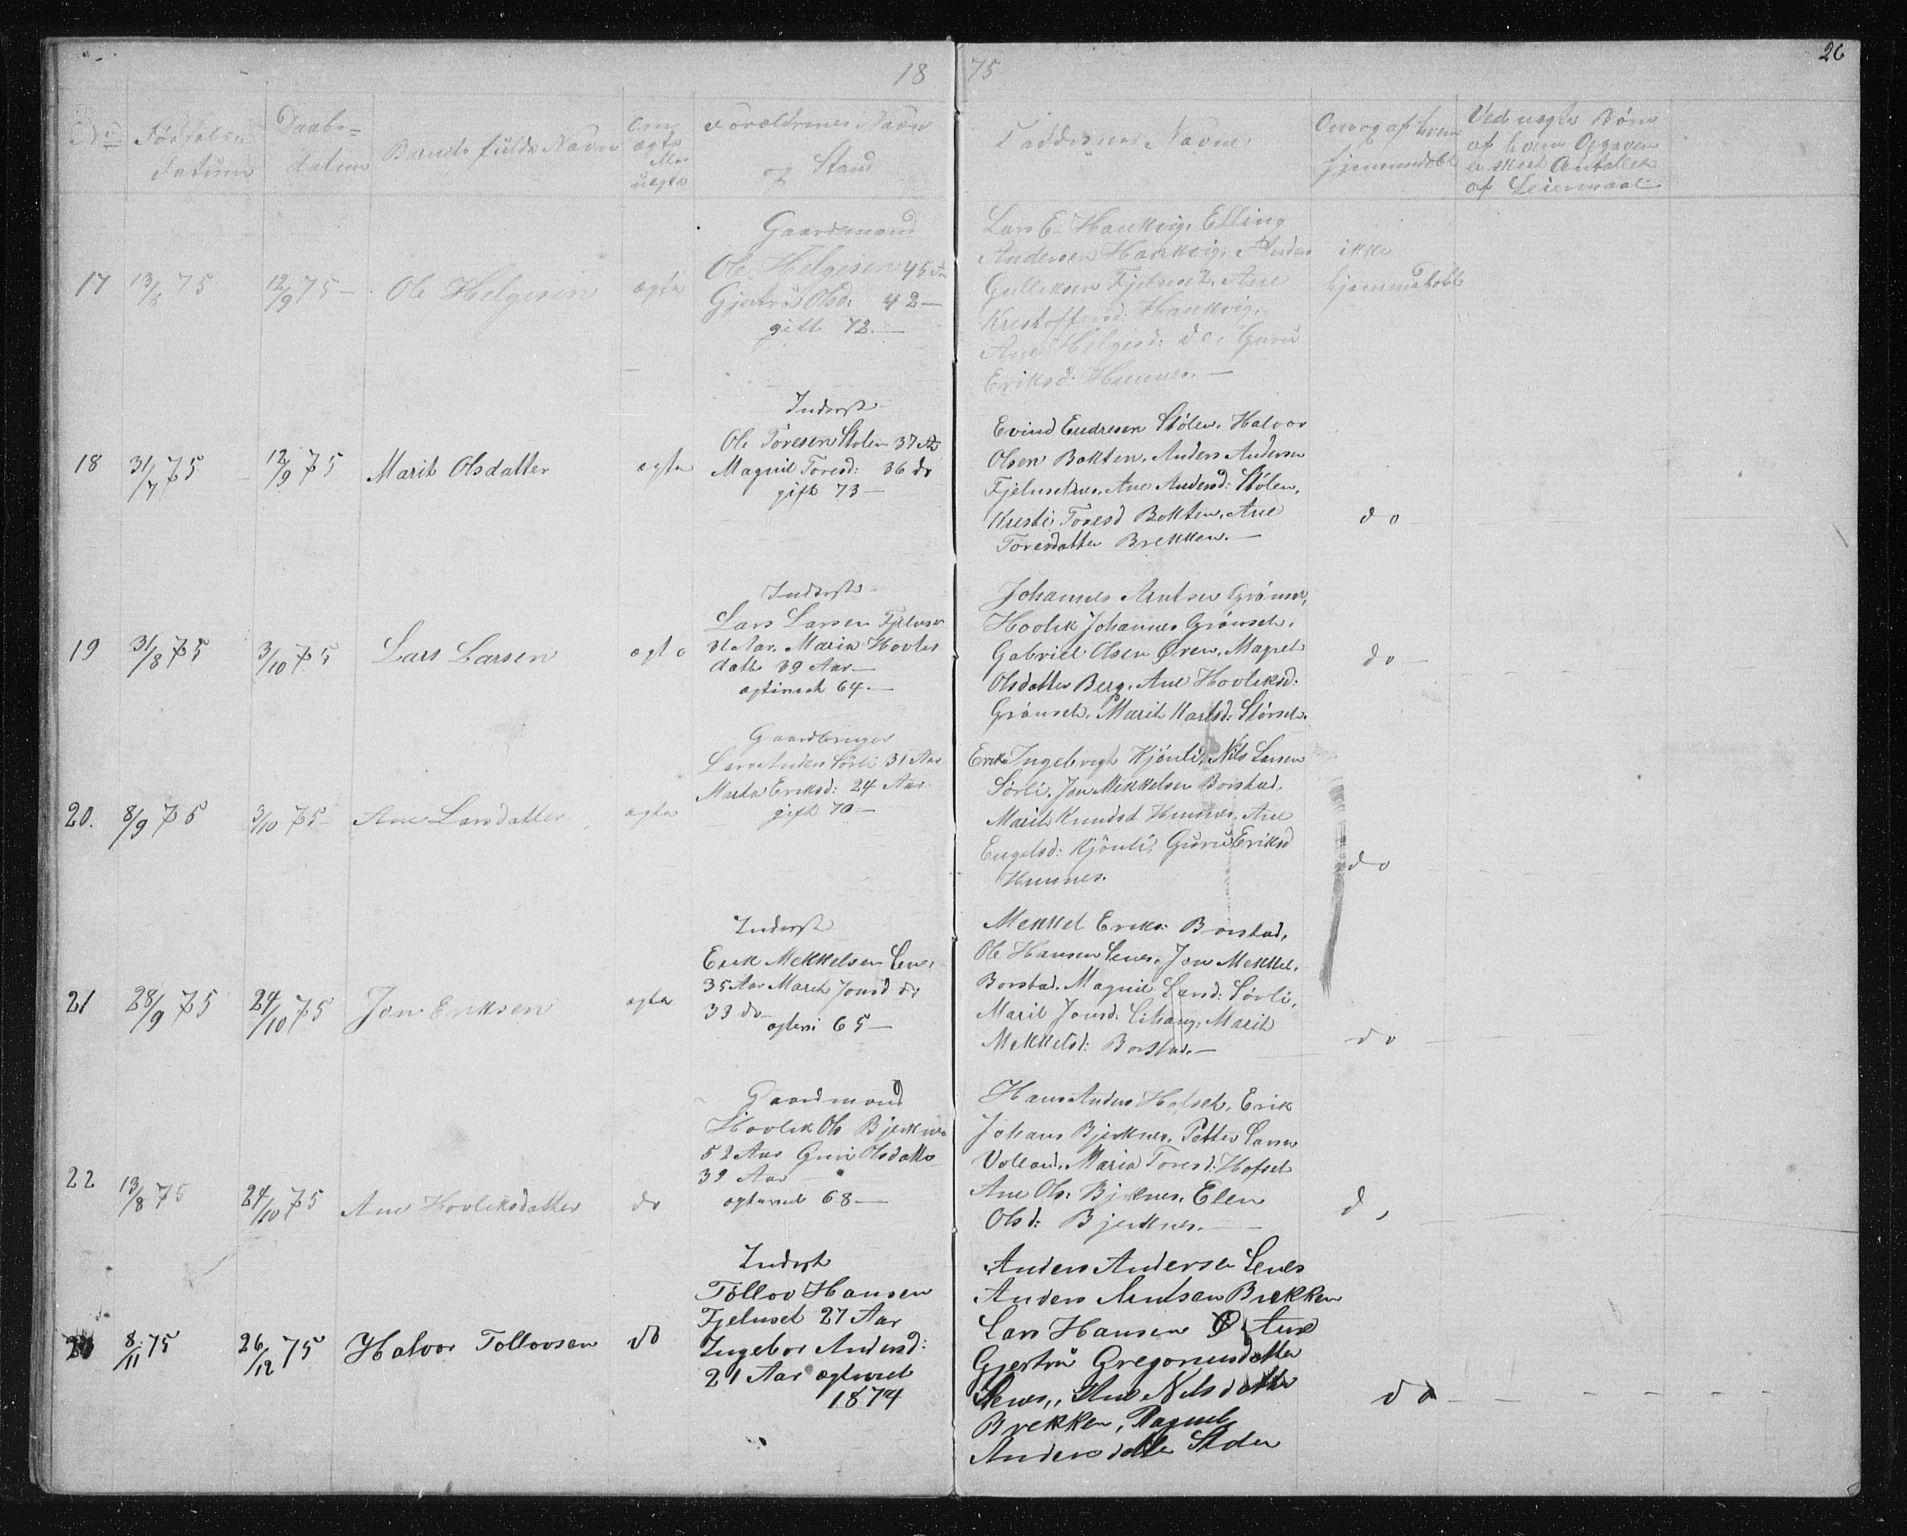 18 75
26
No Fødsels datum
Daabs= datum
Barnets fulde Navn
om ægte eller uægte
Forældrenes Navn og Stand
Faddernes Navne
Om og af hvem hjemmedøbt
Ved uægte Børn af hvem Opgaven er skeet Antallet af Leiermaal
17 13/8 75 12/9 75 — Ole Helgesen ægte
Gaardmand
Ole Helgesen 45 Aar
Gjertru Olsd: 42 —
gift 72. —
Lars E Haukvig, Elling
Andersen Haukvig, Anders
Gulliksen Fjeluset, Ane
Kristoffersd: Haukvig,
Ane Helgesd: do, Guru
Eriksd: Hunnes. —
ikke
hjemmedøbt
18 31/7 75 12/9 75 Marit Olsdatter ægte
Inderst
Ole Toresen Stølen 37 Aar
Magnil Toresd: 36 do
gift 73 —
Evind Endresen Stølen, Halvor
Olsen Bakken, Anders Andersen
Fjeluset, Ane Andersd: Stølen,
Kristi Toresd Bakken, Ane
Toresdatter Brekken. —
do
19 31/8 75 3/10 75 Lars Larsen ægte
Inderst
Lars Larsen Fjeluset
Aar, Maria Hovleks
datter 39 Aar —
ægteviet 64. —
Johannes Arntsen Grønset,
Hovlek Johannes Grønset,
Gabriel Olsen Øren, Magret
Olsdatter Berg, Ane Hovleksd:
Grønset, Marit Larsd: Størset.
do —
20. 8/9 75 3/10 75 Ane Larsdatter ægte
Gaardbruger
Lars Anders Sørli 31 Aar
Marta Eriksd: 24 Aar
gift 70 —
Erik Ingebrigt Kjønli, Nils Larsen
Sørli, Jon Mekkelsen Borstad,
Marit Knudsd Hunnes, Ane
Engelsd: Kjønli, Guru Eriksd
Hunnes.
do
21 28/9 75 24/10 75 Jon Eriksen ægte
Inderst
Erik Mekkelsen Lenes
35 Aar Marit Jonsd do
33 do —
ægtevi 65 —
Mekkel Eriks: Borstad,
Ole Hansen Lenes, Jon Mekkel.
Borstad, Magnil Larsd: Sørli,
Marit Jonsd: Marit
Mekkelsd: Borstad. —
do —
22 13/8 75 24/10 75 Ane Hovleksdatter do
Gaardmand
Hovlek Ols Bjerknes
52 Aar Guri Olsdatter
39 Aar —
ægteviet 68 —
Hans Anders Hofset, Erik
Johans Bjerknes, Petter Larsen
Volland, Maria Toresd: Hofset
Ane Ols: Bjerknes, Elen
Olsd: Bjerknes. —
do
23 8/11 75 26/12 75 Halvor Tollovsen do
Inderst
Tollov Hansen
Fjeluset 27 Aar
Ingebor Andersd:
21 Aar ægteviet
1874
Anders Andersen Lenes
Anders Arntsen Brekken
Lars Hansen Ø. Ane
Gjertru Gregoriusdatter
Lenes, Ane Nilsdatter
Brekken, Ragnel
Andersdatter Stølen
do —